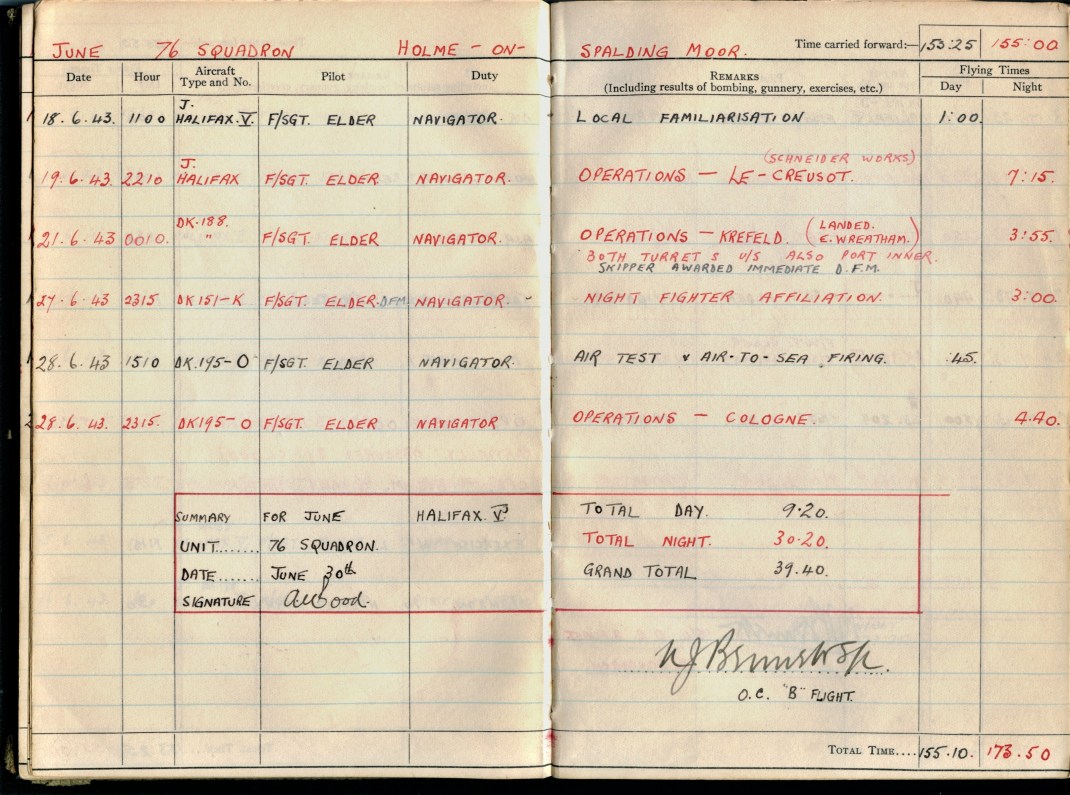 JUNE 76 SQUADRON HOLME - ON - SPALDING MOOR. Time carried forward:— 153:25 155:00
Date Hour Aircraft Type and No. Pilot Duty REMARKS (Including results of bombing, gunnery, exercises, etc.) Flying Times Day Night
18.6.43. 1100 J. HALIFAX.V. F/SGT. ELDER NAVIGATOR. LOCAL FAMILIARISATION 1:00.
(SCHNEIDER WORKS)
19.6.43. 2210 J. HALIFAX F/SGT. ELDER NAVIGATOR. OPERATIONS — LE-CREUSOT. 7:15.
21.6.43 0010. DK.188. " F/SGT. ELDER NAVIGATOR. OPERATIONS — KREFELD. (LANDED. E. WREATHAM.) 3:55.
BOTH TURRETS U/S ALSO PORT INNER.
SKIPPER AWARDED IMMEDIATE D.F.M.
27.6.43 2315 DK151-K F/SGT. ELDER.DFM. NAVIGATOR. NIGHT FIGHTER AFFILIATION. 3:00.
28.6.43 1510 DK.195-O F/SGT. ELDER NAVIGATOR. AIR TEST & AIR-TO-SEA FIRING. :45.
28.6.43. 2315. DK195-O F/SGT. ELDER NAVIGATOR OPERATIONS — COLOGNE. 4.40.
SUMMARY FOR JUNE HALIFAX.V. TOTAL DAY. 9.20.
UNIT...... 76 SQUADRON. TOTAL NIGHT. 30.20.
DATE...... JUNE 30th GRAND TOTAL 39.40.
SIGNATURE AWood.
O.C. "B" FLIGHT.
TOTAL TIME.... 155.10. 173.50